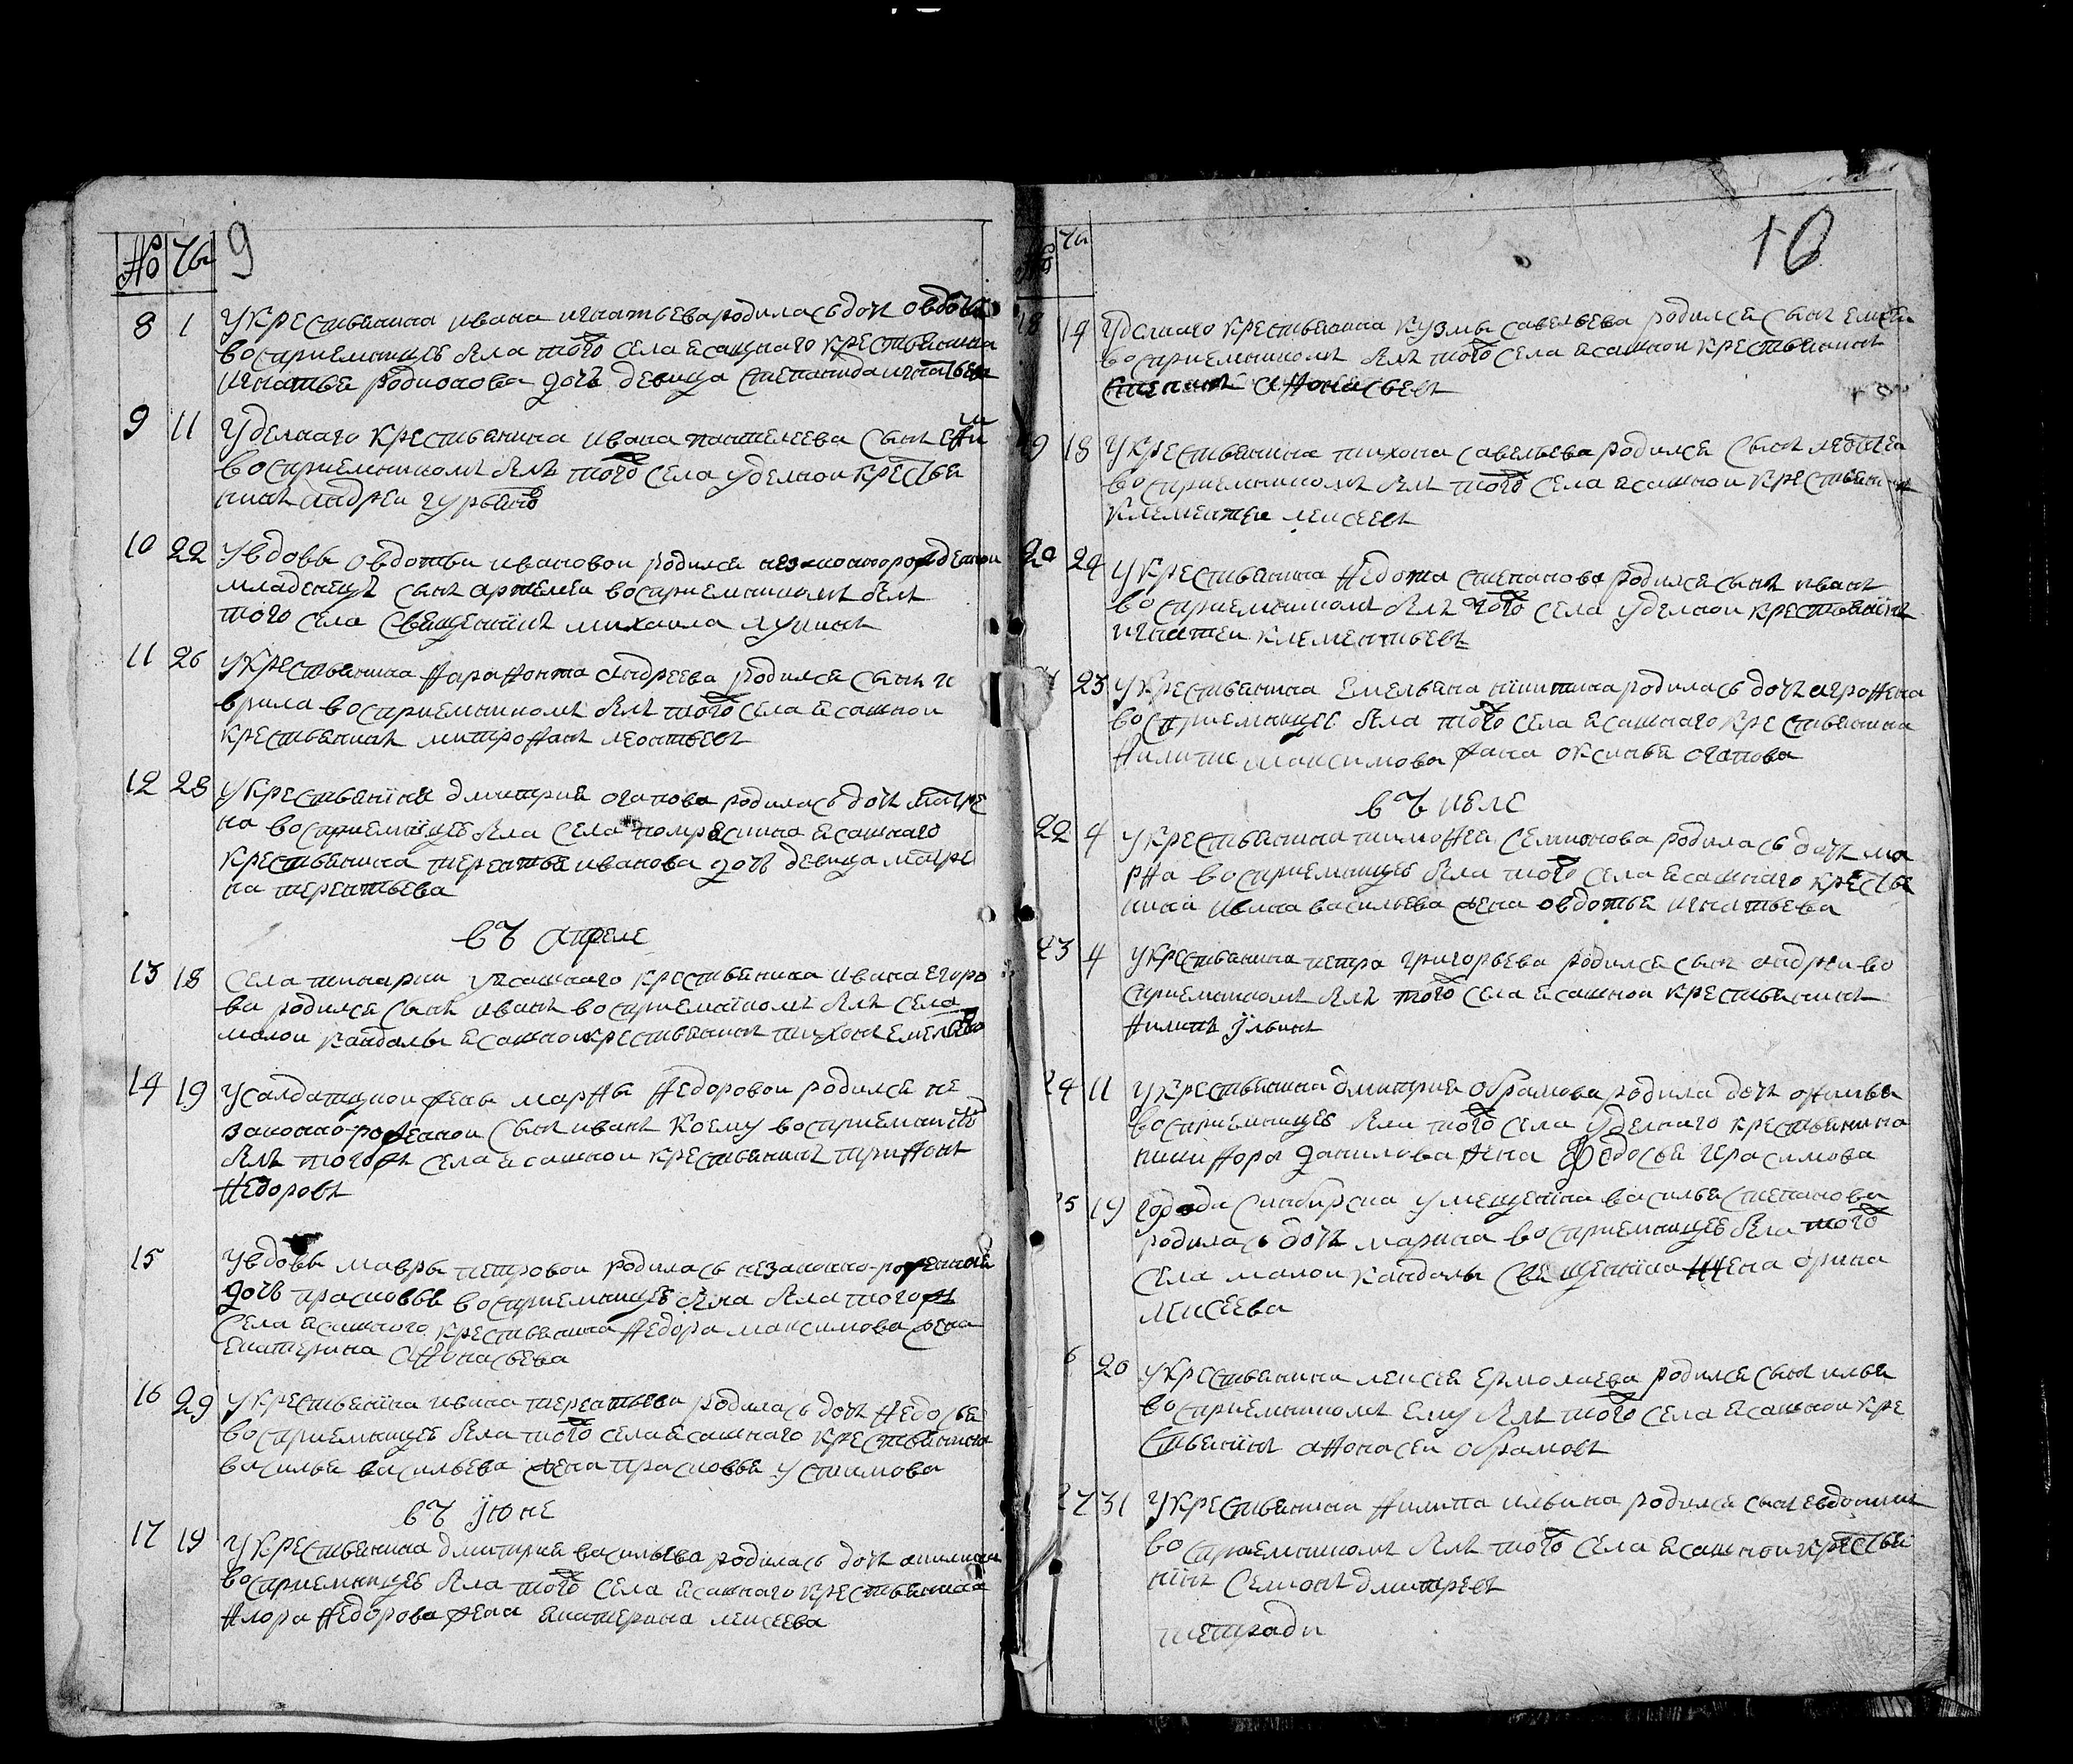 9
№ Чи
8 1 У крестьянина ивана игнатьева родилась дочь овдотья
восприемницею была тогож села ясашнаго крестьянина
игнатья родионова дочь девица степанида игнатьева
9 11 Уделнаго крестьянина ивана пантелеева сынъ
восприемникомъ былъ тогож села уделнои крестья
нинъ андреи гурьяно
10 22 У вдовы овдотьи ивановои родился незаконнорожденнои
младенецъ сынъ артемеи восприемникомъ былъ
того села священникъ михаила лукинъ
11 26 У крестьянина фарафонта андреева родился сынъ га
врила восприемникомъ былъ тогож села ясашнои
крестьянинъ митрофанъ леонтьевъ
12 28 У крестьянина дмитрия огапова родилась дочь матре
на восприемницею была села помряскина ясашнаго
крестьянина терентья иванова дочь девица матре
на терентьева
въ апреле
13 18 села тинарки ясашнаго крестьянина ивана егоро
ва родился сынъ иванъ восприемникомъ былъ села
малои кандалы ясашнои крестьянинъ тихонъ емелья
14 19 У салдатцкои жены марфы федоровои родился не
законно-рожденнои сынъ иванъ коему восприемником
былъ тогожъ села ясашнои крестьянинъ трифонъ
федоровъ
15 У вдовы мавры петровои родилась незаконно-рожденная
дочь прасковья восприемницею была была тогожъ
села ясашного крестьянина федора максимова жена
екатерина афонасьева
16 29 У крестьянина ивана терентьева родилась дочь федосья
восприемницею была тогож села ясашнаго крестьянина
василья васильева жена прасковья устимова
въ июне
17 19 У крестьянина дмитрия васильева родилась дочь акилина
восприемницею была тогож села ясашнаго крестьянина
флора федорова жена екатерина алексеева
10
№ Чи
18 14 Уделнаго крестьянина кузмы савельева родился сынъ елисеи
восприемникомъ былъ тогож села ясашнои крестьянинъ
степанъ афонасьевъ
19 18 У крестьянина тихона савельева родился сынъ леонтеи
восприемникомъ былъ тогож села ясашнои крестьянинъ
клементеи алексеевъ
20 24 У крестьянина федота степанова родился сынъ иванъ
восприемникомъ былъ тогож села уделнои крестьянинъ
игнатеи клементьевъ
25 У крестьянина емельяна никитина родилась дочь агрофена
восприемницею была тогож села ясашнаго крестьянина
филипа максимова жена оксинья огапова
въ июле
22 4 У крестьянина тимофея семионова родилась дочь ма
рфа восприемницею была тогож села ясашнаго крестья
нина ивана васильева жена овдотья игнатьева
23 4 У крестьянина петра григорьева родился сынъ андреи во
сприемникомъ былъ тогож села ясашнои крестьянинъ
филипъ ильинъ
24 11 У крестьянина дмитрия обрамова родила дочь офимья
восприемницею была тогож села уделнаго крестьянина
никифора данилова жена федосья герасимова
5 19 города симбирска у мещенина василья степанова
родилась дочь марина восприемницею была тогож
села малои кандалы священника жена орина
алексеева
6 20 У крестьянина алексея ермолаева родился сынъ илья
восприемникомъ ему былъ тогож села ясашнои кре
стьянинъ афонасеи обрамовъ
27 31 У крестьянина филипа ильина родился сынъ евдокимъ
восприемникомъ былъ тогож села ясашнои крестья
нинъ семионъ дмитревъ
тетради